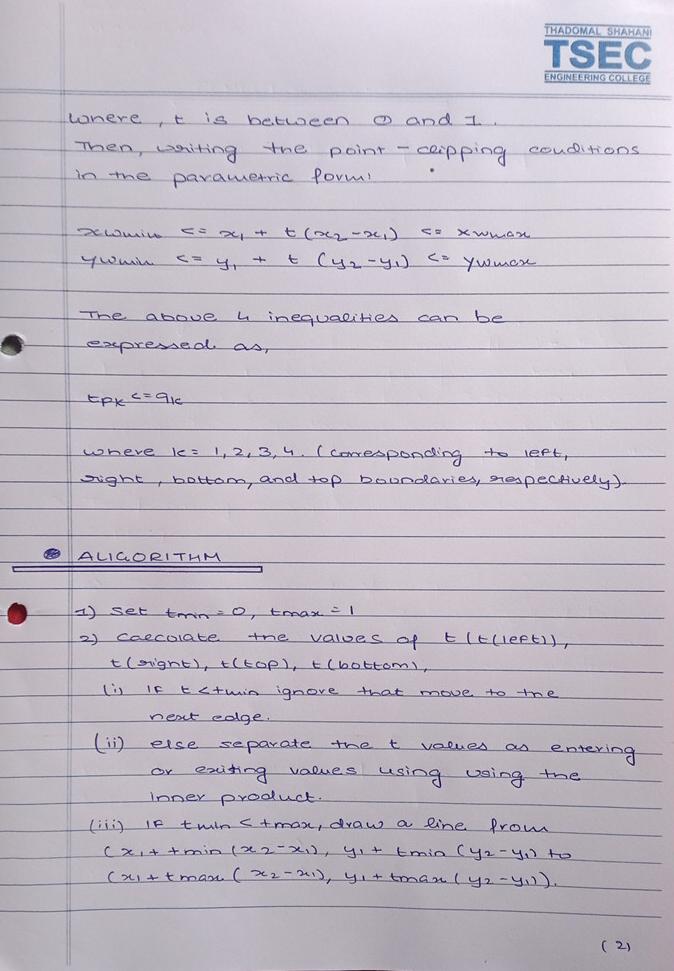 THADOMAL SHAHANI
TSEC
ENGINEERING COLLEGE
where, t is between 0 and 1.
Then, writing the point - clipping conditions
in the parametric form:
xwmin <= x1 + t(x2-x1) <= xwmax
ywmin <= y1 + t (y2-y1) <= ywmax
The above 4 inequalities can be
expressed as,
tpk <= qk
where k= 1,2,3,4. (corresponding to left,
right, bottom, and top boundaries, respectively).
ALIGORITHM
1) set tmin = 0, tmax = 1
2) calculate the values of t (t(left)),
t(right), t(top), t(bottom),
(i) If t<tmin ignore that move to the
next edge.
(ii) else separate the t values as entering
or exiting values using using the
inner product.
(iii) If tmin < tmax, draw a line from
(x1 + tmin (x2-x1), y1 + tmin (y2-y1) to
(x1 + tmax ( x2-x1), y1 + tmax ( y2-y1)).
(2)